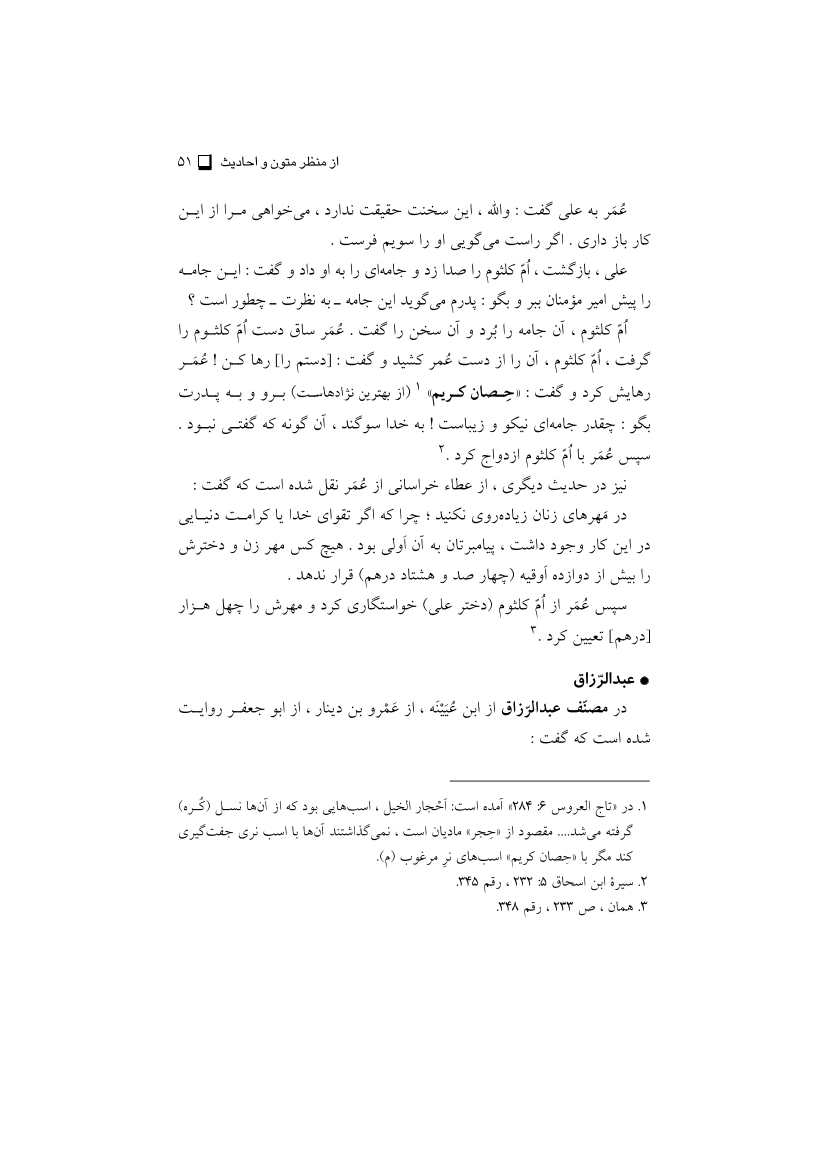 از منظر متون و احادیث ❑ ۵۱
عُمَر به علی گفت : والله ، این سخنت حقیقت ندارد ، می‌خواهی مـرا از ایـن
کار باز داری . اگر راست می‌گویی او را سویم فرست .
علی ، بازگشت ، اُمّ کلثوم را صدا زد و جامه‌ای را به او داد و گفت : ایـن جامـه
را پیش امیر مؤمنان ببر و بگو : پدرم می‌گوید این جامه ـ به نظرت ـ چطور است ؟
اُمّ کلثوم ، آن جامه را بُرد و آن سخن را گفت . عُمَر ساق دست اُمّ کلثـوم را
گرفت ، اُمّ کلثوم ، آن را از دست عُمر کشید و گفت : [دستم را] رها کـن ! عُمَـر
رهایش کرد و گفت : «حِـصان کـریم» ۱ (از بهترین نژادهاسـت) بـرو و بـه پـدرت
بگو : چقدر جامه‌ای نیکو و زیباست ! به خدا سوگند ، آن گونه که گفتـی نبـود .
سپس عُمَر با اُمّ کلثوم ازدواج کرد .۲
نیز در حدیث دیگری ، از عطاء خراسانی از عُمَر نقل شده است که گفت :
در مَهرهای زنان زیاده‌روی نکنید ؛ چرا که اگر تقوای خدا یا کرامـت دنیـایی
در این کار وجود داشت ، پیامبرتان به آن اَولی بود . هیچ کس مهر زن و دخترش
را بیش از دوازده اَوقیه (چهار صد و هشتاد درهم) قرار ندهد .
سپس عُمَر از اُمّ کلثوم (دختر علی) خواستگاری کرد و مهرش را چهل هـزار
[درهم] تعیین کرد .۳
● عبدالرّزاق
در مصنّف عبدالرّزاق از ابن عُیَیْنَه ، از عَمْرو بن دینار ، از ابو جعفـر روایـت
شده است که گفت :
۱. در «تاج العروس ۶: ۲۸۴» آمده است: اَحْجار الخیل ، اسب‌هایی بود که از آن‌ها نسـل (کُـره)
گرفته می‌شد.... مقصود از «حِجر» مادیان است ، نمی‌گذاشتند آن‌ها با اسب نری جفت‌گیری
کند مگر با «حِصان کریم» اسب‌های نرِ مرغوب (م).
۲. سیرهٔ ابن اسحاق ۵: ۲۳۲ ، رقم ۳۴۵.
۳. همان ، ص ۲۳۳ ، رقم ۳۴۸.